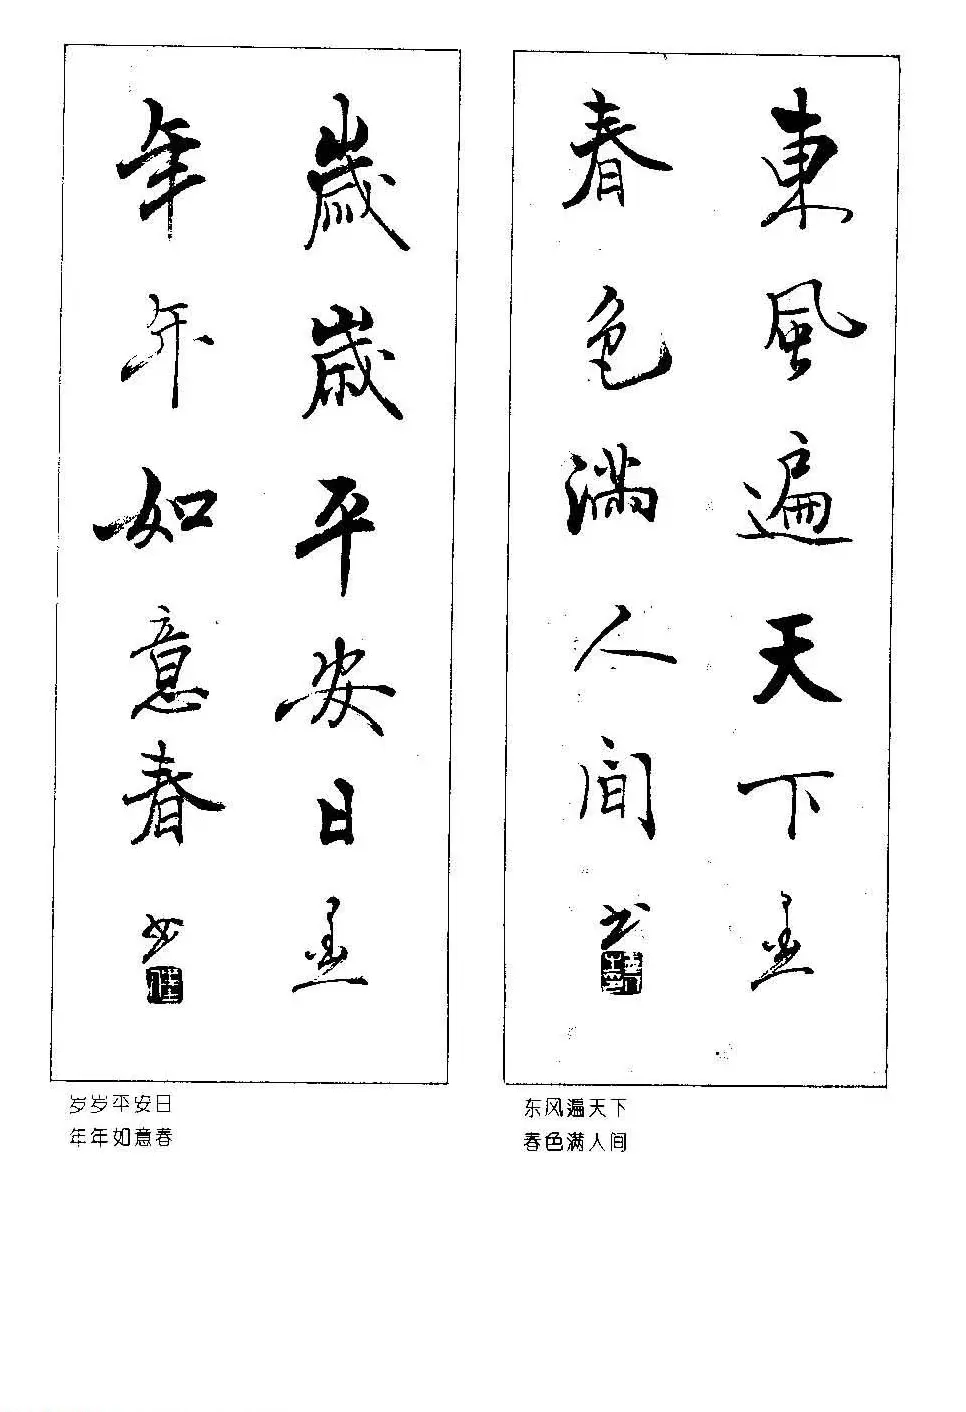 東風遍天下
春色滿人間
歲歲平安日
年年如意春
东风遍天下
春色满人间
岁岁平安日
年年如意春